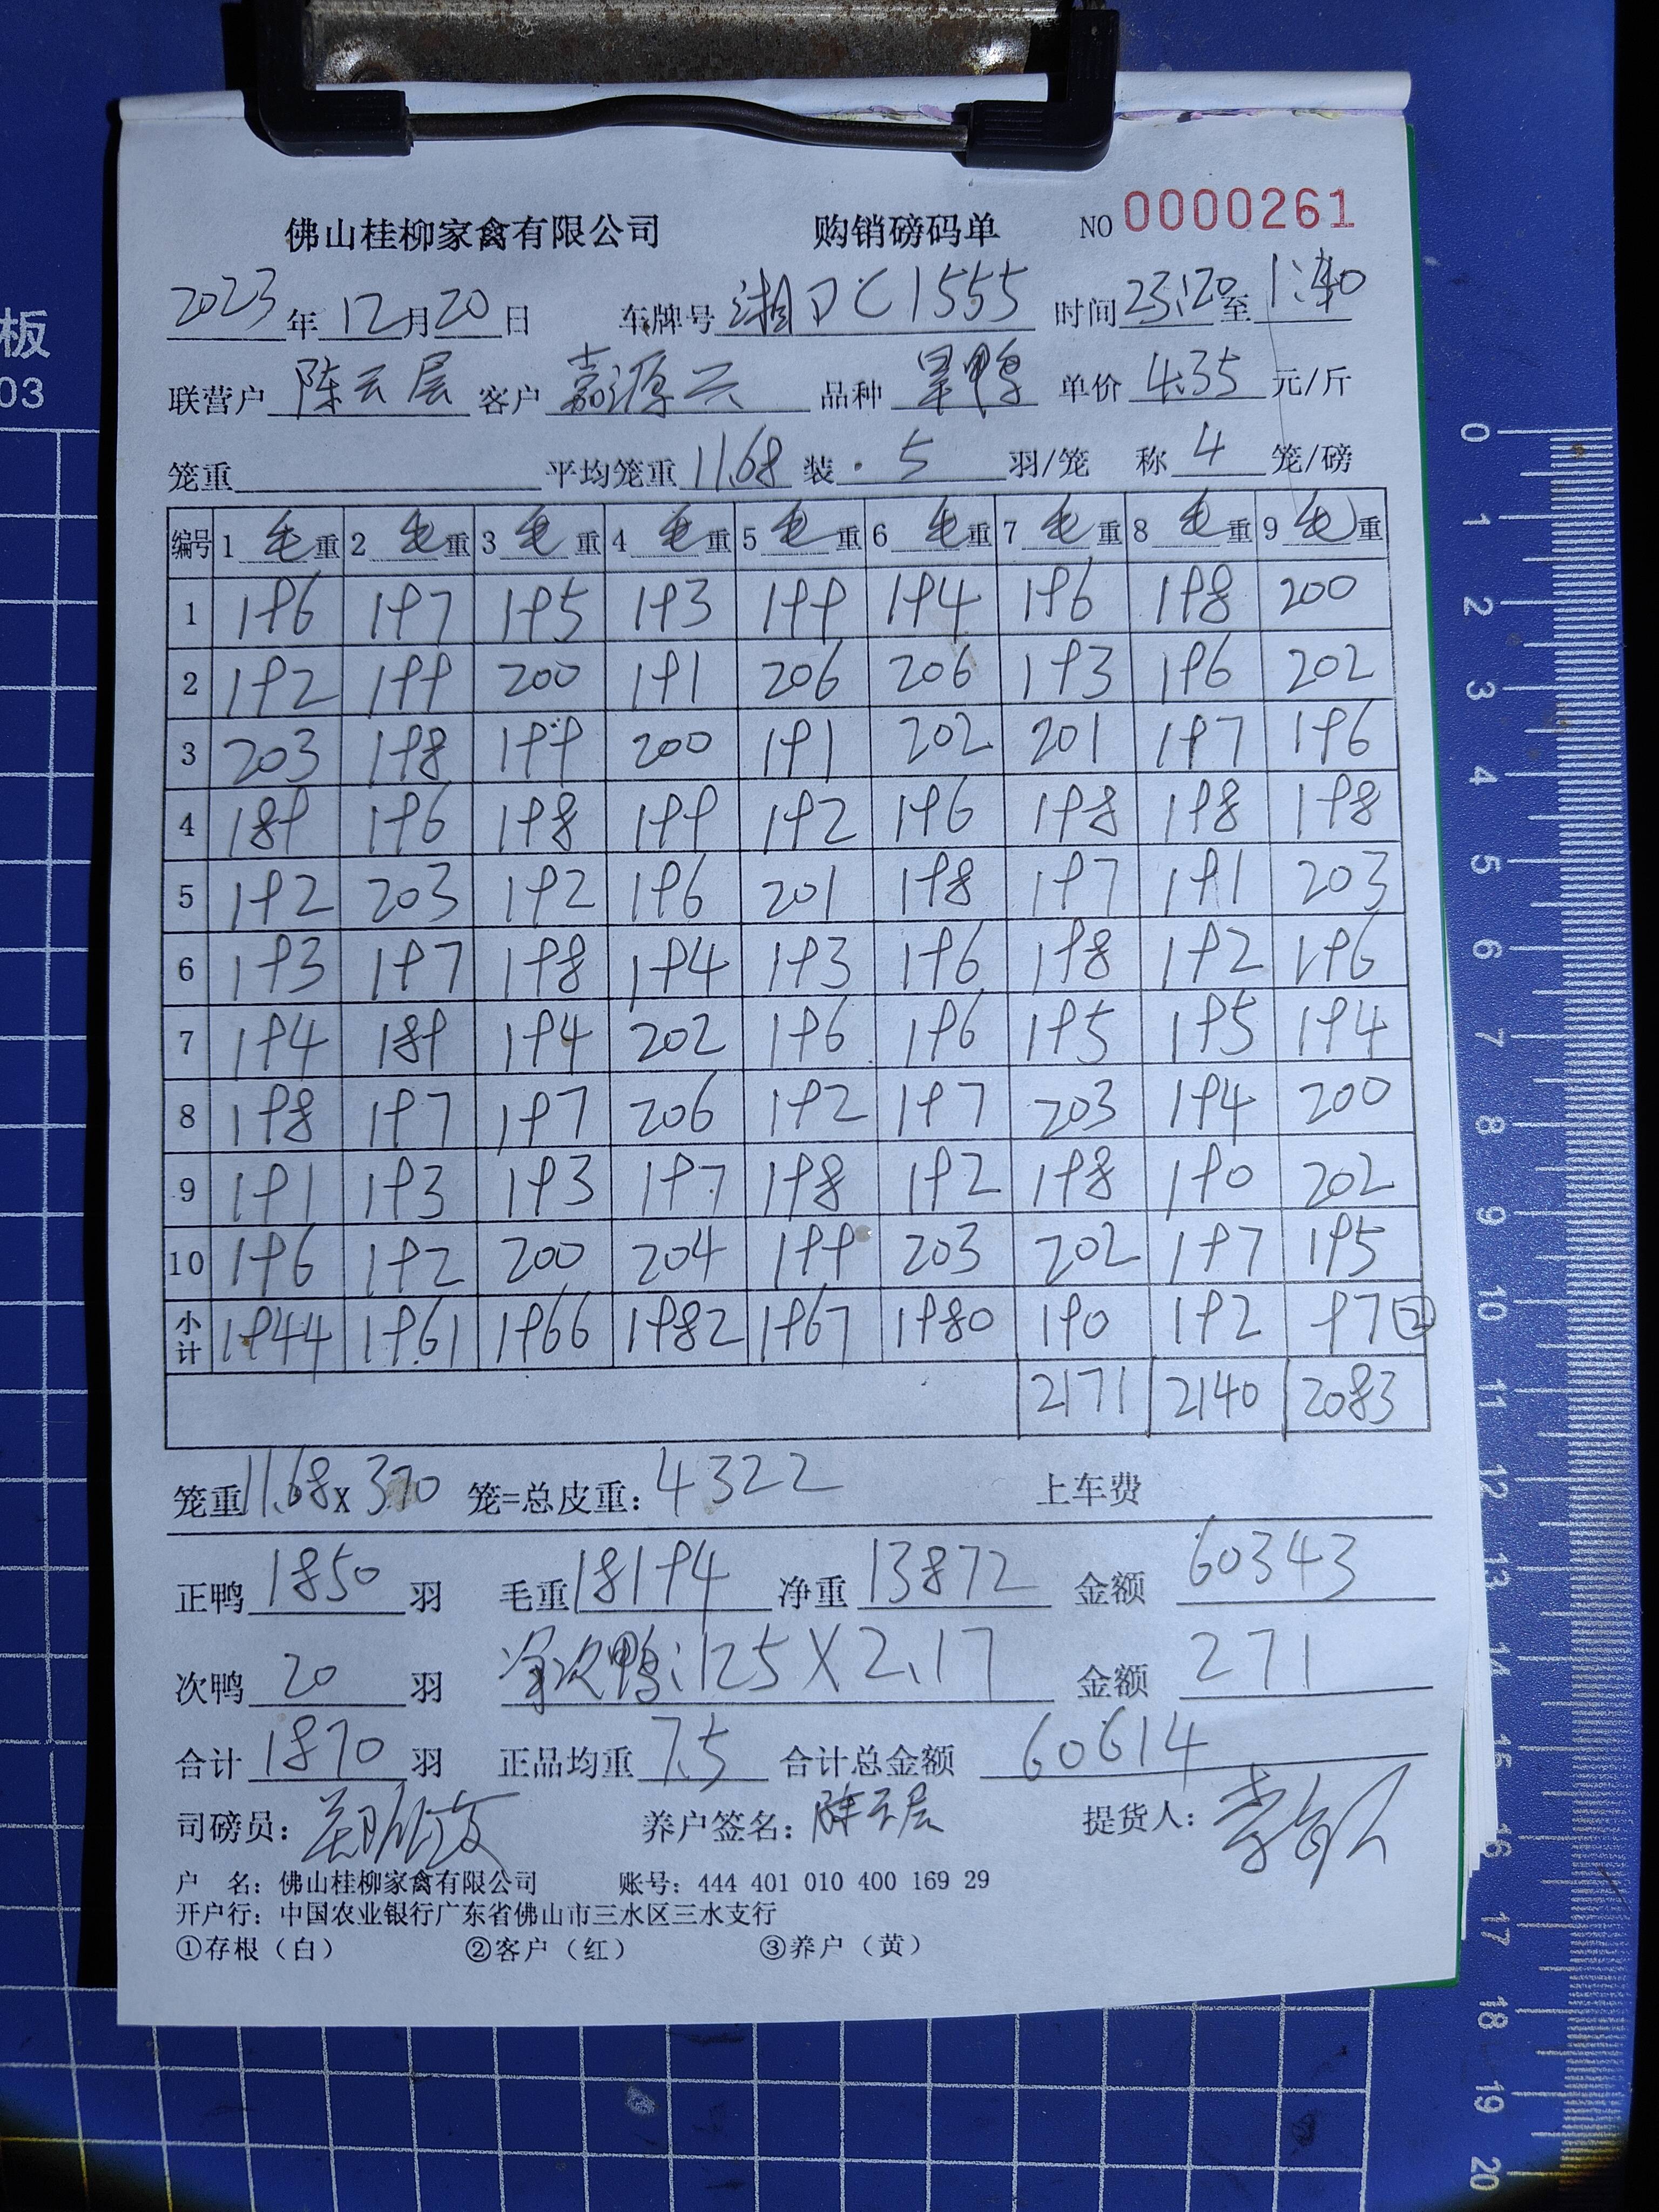 板
03
佛山桂柳家禽有限公司 购销磅码单 NO 0000261
2023年12月20日 车牌号 湘DC1555 时间 23:20至1:40
联营户 陈云层 客户 嘉源兴 品种 旱鸭 单价 4.35 元/斤
笼重 平均笼重 11.68 装 5 羽/笼 称 4 笼/磅
编号 1 毛重 2 毛重 3 毛重 4 毛重 5 毛重 6 毛重 7 毛重 8 毛重 9 毛重
1 196 197 195 193 199 194 196 198 200
2 192 199 200 191 206 206 193 196 202
3 203 198 199 200 191 202 201 197 196
4 189 196 198 199 192 196 198 198 198
5 192 203 192 196 201 198 197 191 203
6 193 197 198 194 193 196 198 192 196
7 194 189 194 202 196 196 195 195 194
8 198 197 197 206 192 197 203 194 200
9 191 193 193 197 198 192 198 190 202
10 196 192 200 204 199 203 202 197 195
小计 1944 1961 1966 1982 1967 1980 190 192 97②
2171 2140 2083
笼重11.68x370 笼=总皮重：4322 上车费
正鸭 1850 羽 毛重 18194 净重 13872 金额 60343
次鸭 20 羽 次鸭：125X2.17 金额 271
合计 1870 羽 正品均重 7.5 合计总金额 60614
司磅员： 养户签名：陈云层 提货人：
户 名：佛山桂柳家禽有限公司 账号：444 401 010 400 169 29
开户行：中国农业银行广东省佛山市三水区三水支行
①存根（白） ②客户（红） ③养户（黄）
0
1
2
3
4
5
6
7
8
9
10
11
12
13
14
15
16
17
18
19
20